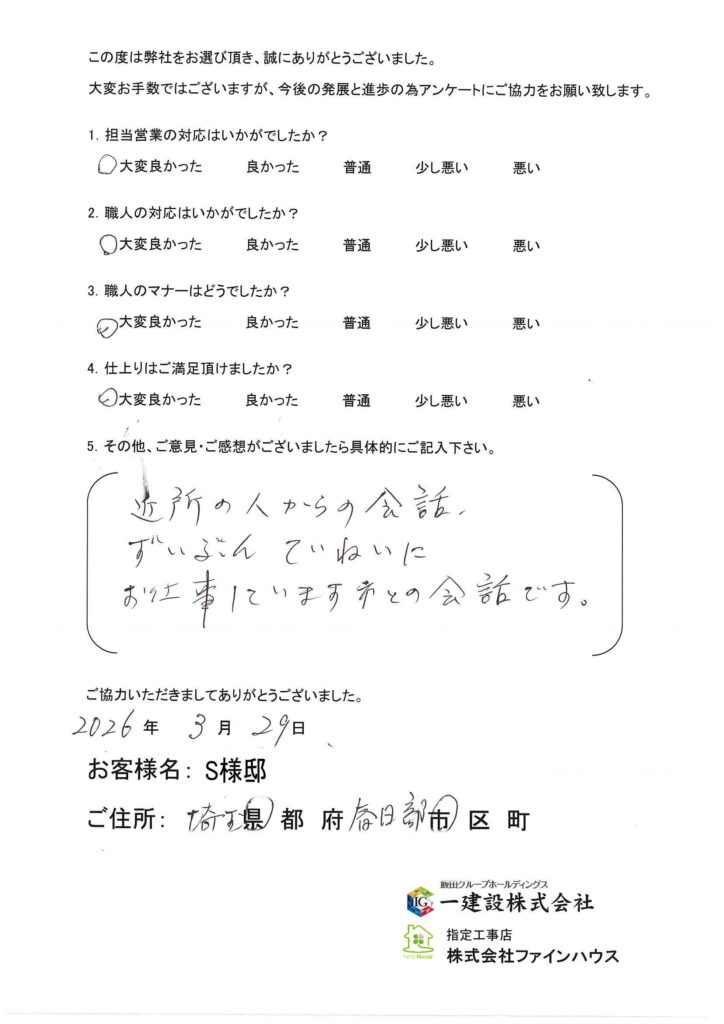 この度は弊社をお選び頂き、誠にありがとうございました。
大変お手数ではございますが、今後の発展と進歩の為アンケートにご協力をお願い致します。
1. 担当営業の対応はいかがでしたか？
大変良かった 良かった 普通 少し悪い 悪い
2. 職人の対応はいかがでしたか？
大変良かった 良かった 普通 少し悪い 悪い
3. 職人のマナーはどうでしたか？
大変良かった 良かった 普通 少し悪い 悪い
4. 仕上りはご満足頂けましたか？
大変良かった 良かった 普通 少し悪い 悪い
5. その他、ご意見・ご感想がございましたら具体的にご記入下さい。
近所の人からの会話、
ずいぶん ていねいに
お仕事しています との会話です。
ご協力いただきましてありがとうございました。
2026 年 3 月 29 日
お客様名： S様邸
ご住所： 埼玉 県 都 府 春日部 市 区 町
飯田グループホールディングス
IG 一建設株式会社
指定工事店
株式会社ファインハウス